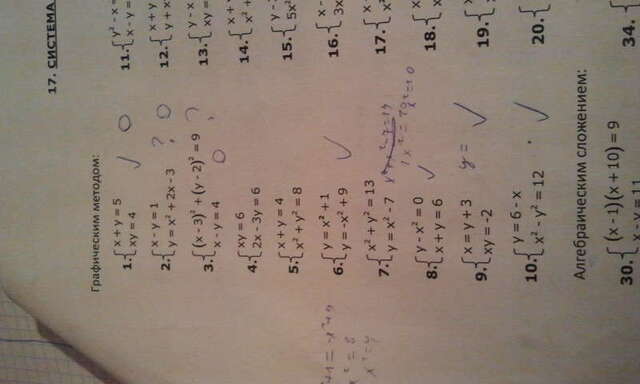 17. СИСТЕМА
Графическим методом:
1. { x + y = 5
xy = 4
2. { x - y = 1
y = x² + 2x - 3
3. { (x - 3)² + (y - 2)² = 9
x - y = 4
4. { xy = 6
2x - 3y = 6
5. { x + y = 4
x² + y² = 8
6. { y = x² + 1
y = -x² + 9
7. { x² + y² = 13
y = x² - 7
8. { y - x² = 0
x + y = 6
9. { x = y + 3
xy = -2
y =
10. { y = 6 - x
x² - y² = 12
11. { y² - x
x - y =
12. { x + y
y + x
13. { y - x
xy =
14. { x +
x² +
15. { y
5x²
16. { x -
3x
17. { x -
18. { x
19. { x
20. {
Алгебраическим сложением:
30. { (x - 1)(x + 10) = 9
34. {